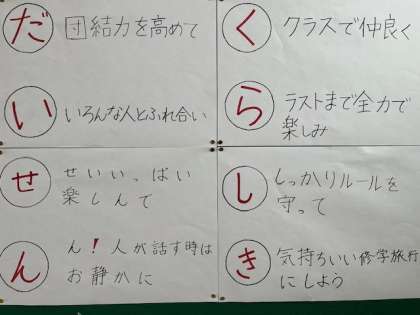 だ 団結力を高めて
い いろんな人とふれ合い
せ せいいっぱい
楽しんで
ん ん！人が話す時は
お静かに
く クラスで仲良く
ら ラストまで全力で
楽しみ
し しっかりルールを
守って
き 気持ちいい修学旅行
にしよう